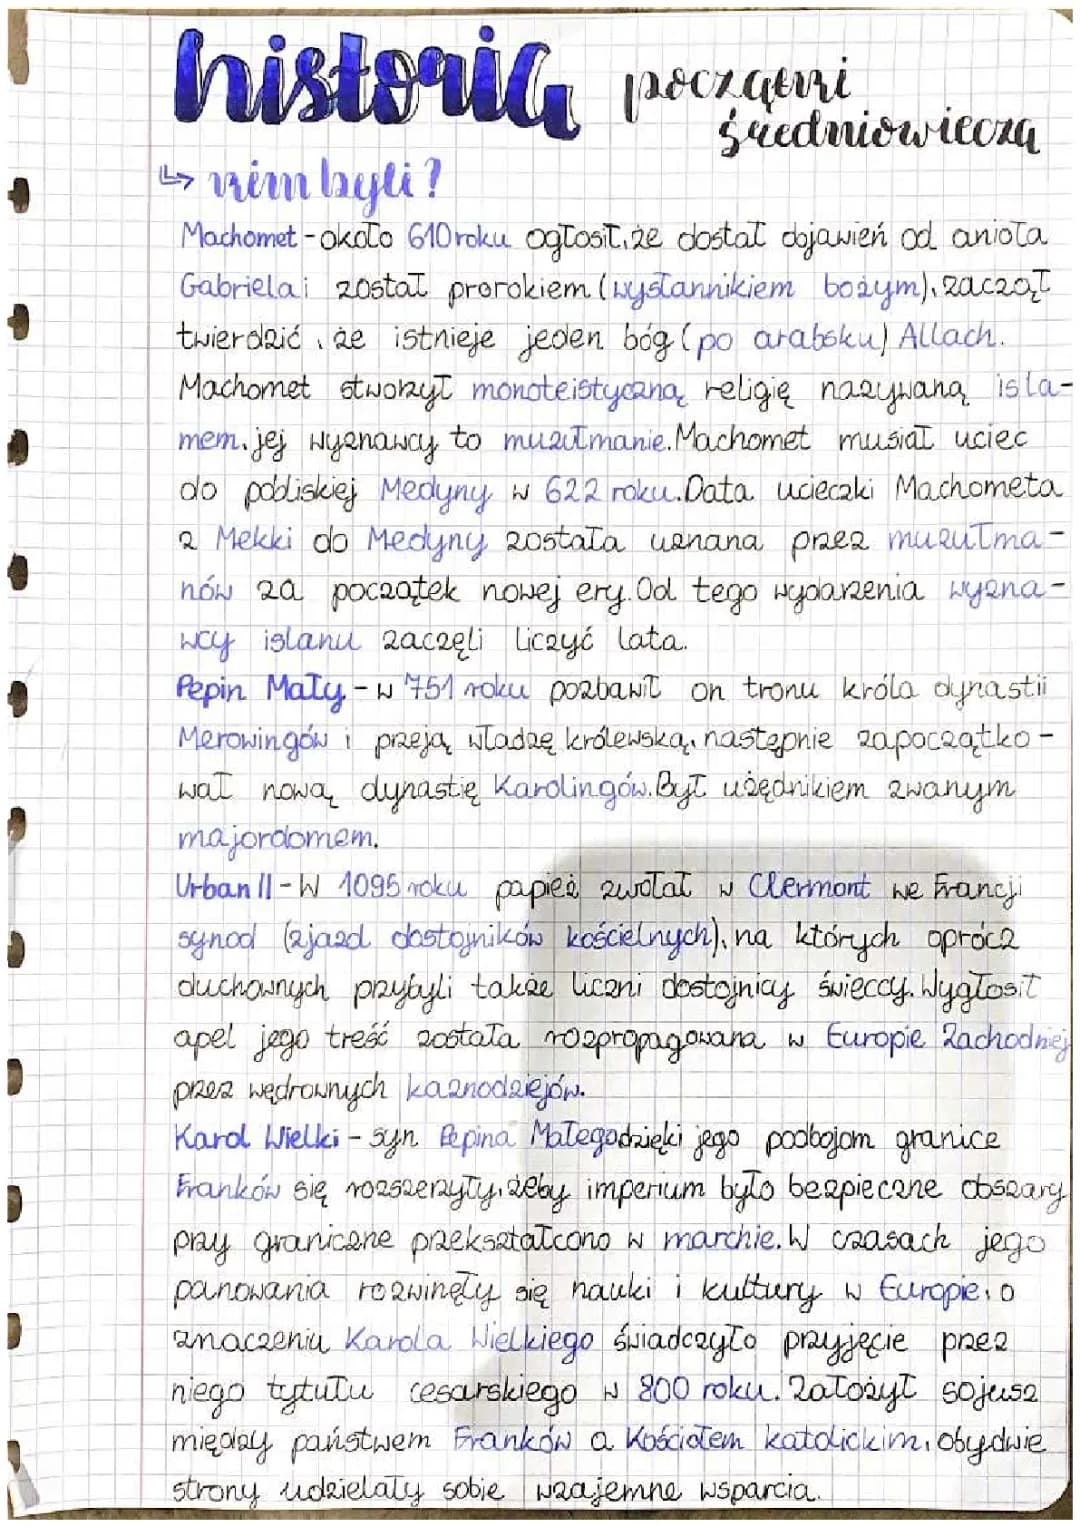 historia początki
średniowiecza
↳ kim byli?
Machomet - około 610 roku ogłosił, że dostał dojawień od anioła
Gabriela i został prorokiem (wysłannikiem bożym), zaczął
twierdzić, że istnieje jeden bóg (po arabsku) Allach.
Machomet stworzył monoteistyczną religię nazywaną isla-
mem, jej wyznawcy to muzułmanie. Machomet musiał uciec
do pobliskiej Medyny w 622 roku. Data ucieczki Machometa
z Mekki do Medyny została uznana przez muzułma-
nów za początek nowej ery. Od tego wydarzenia wyzna-
wcy islanu zaczęli liczyć lata.
Pepin Mały - w 751 roku pozbawił on tronu króla dynastii
Merowingów i przeją władzę królewską, następnie zapoczątko-
wał nową dynastię Karolingów. Był użędnikiem zwanym
majordomem.
Urban II - W 1095 roku papież zwołał w Clermont we Francji
synod (zjazd dostojników kościelnych), na których oprócz
duchownych przybyli także liczni dostojnicy świeccy. Wygłosił
apel jego treść została rozpropagowana w Europie Zachodniej
przez wędrownych kaznodziejów.
Karol Wielki - syn Pepina Małego dzięki jego podbojom granice
Franków się rozszerzyły, żeby imperium było bezpieczne obszary
przy graniczne przekształcono w marchie. W czasach jego
panowania rozwinęły się nauki i kultury w Europie, o
znaczeniu Karola Wielkiego świadczyło przyjęcie przez
niego tytułu cesarskiego w 800 roku. Założył sojusz
między państwem Franków a Kościołem katolickim, obydwie
strony udzielały sobie wzajemne wsparcia.